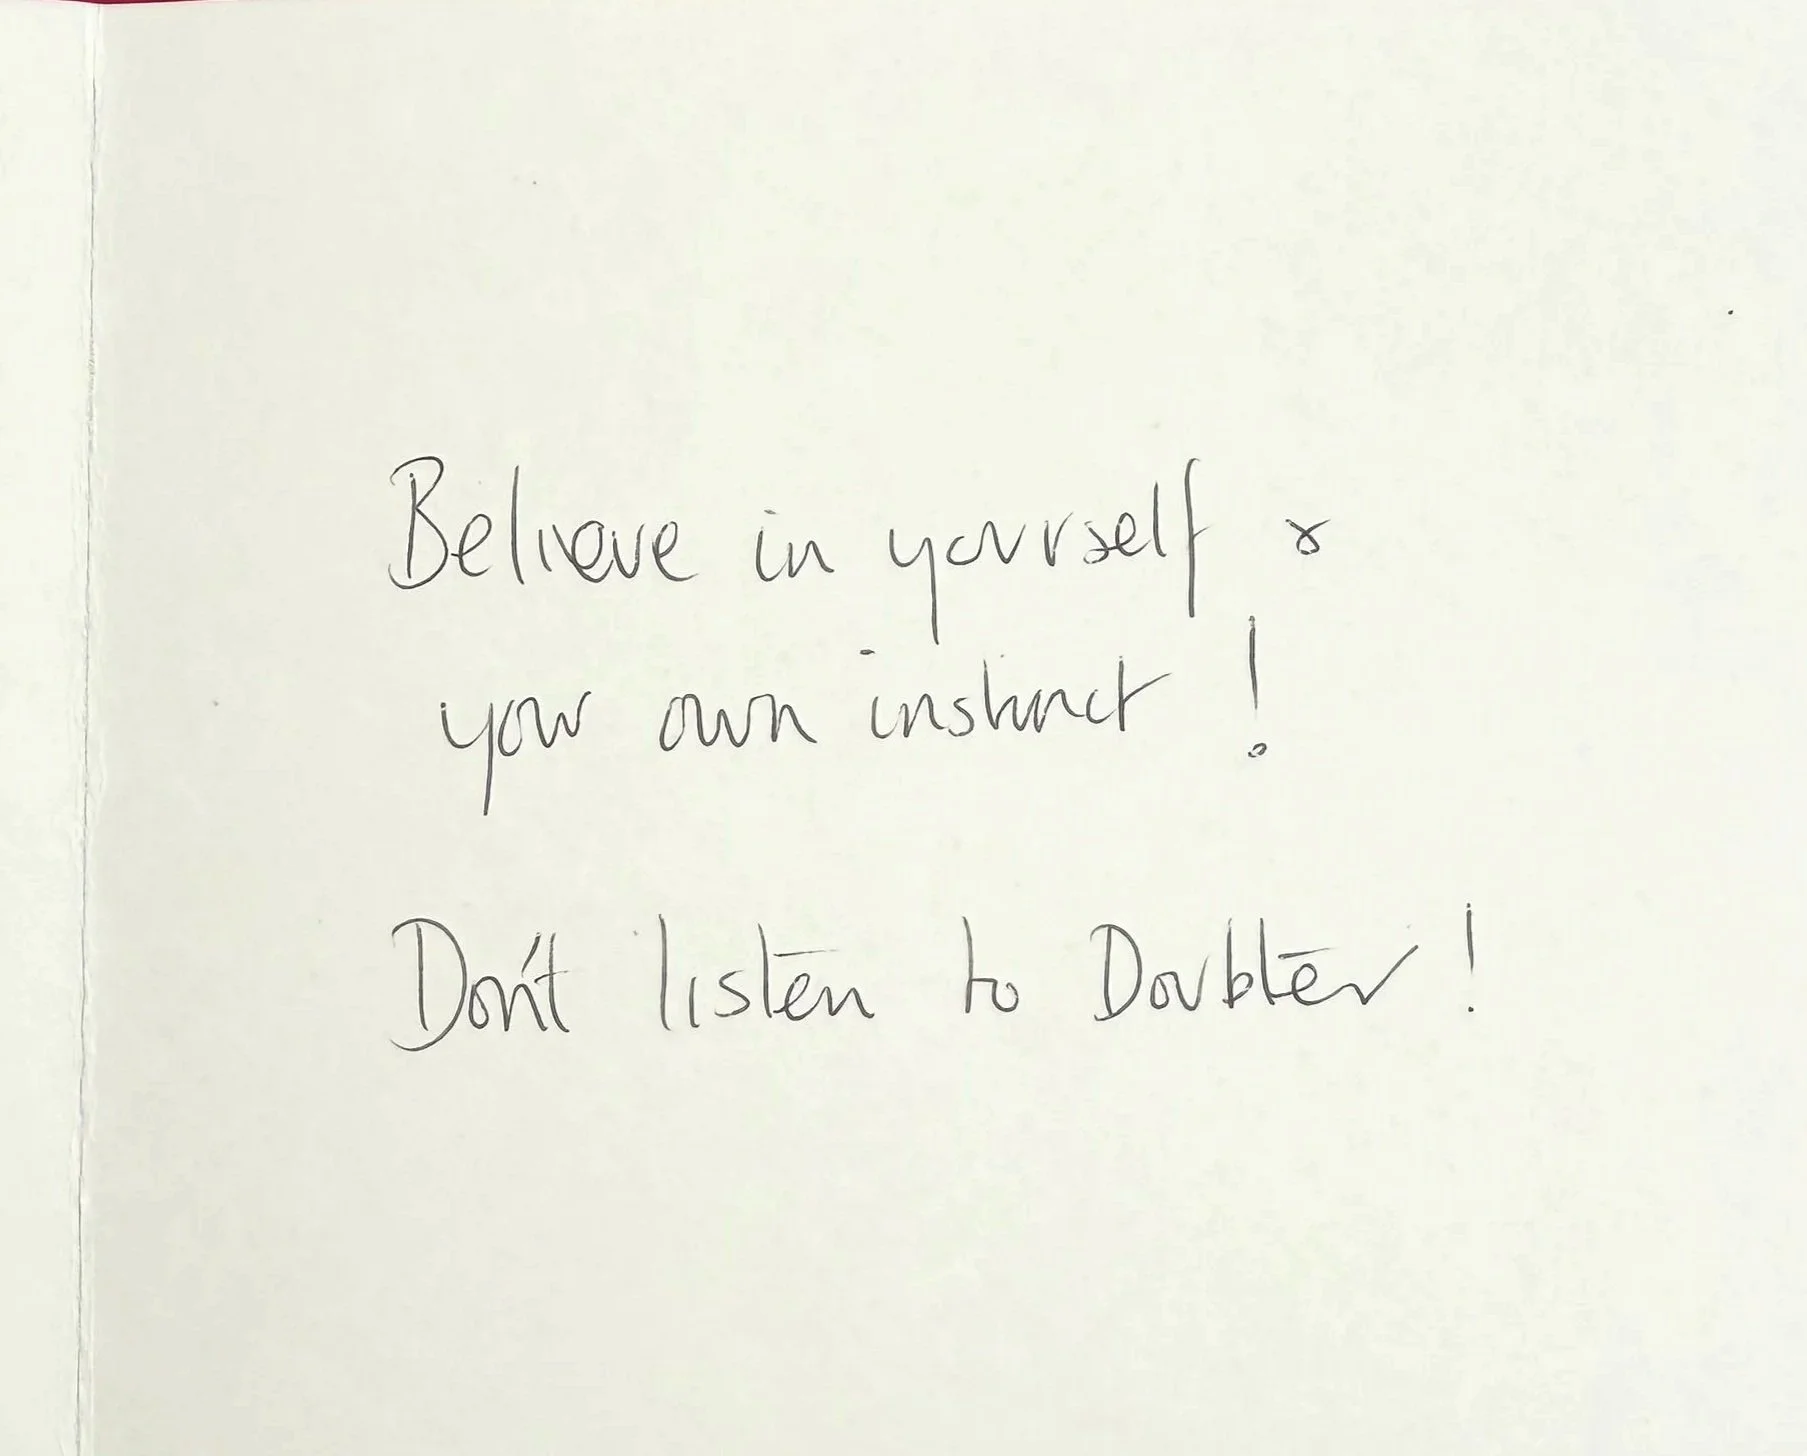 Believe in yourself &
your own instinct !
Don't listen to Doubter !